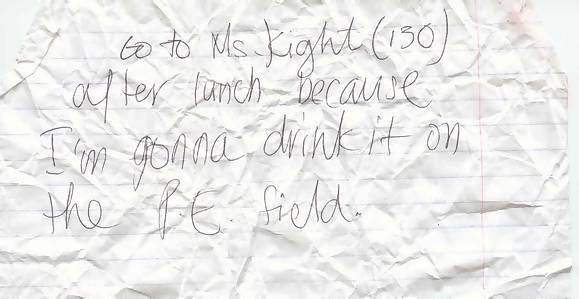 Go to Ms. Kight (130)
after lunch because
I'm gonna drink it on
the P.E. field.